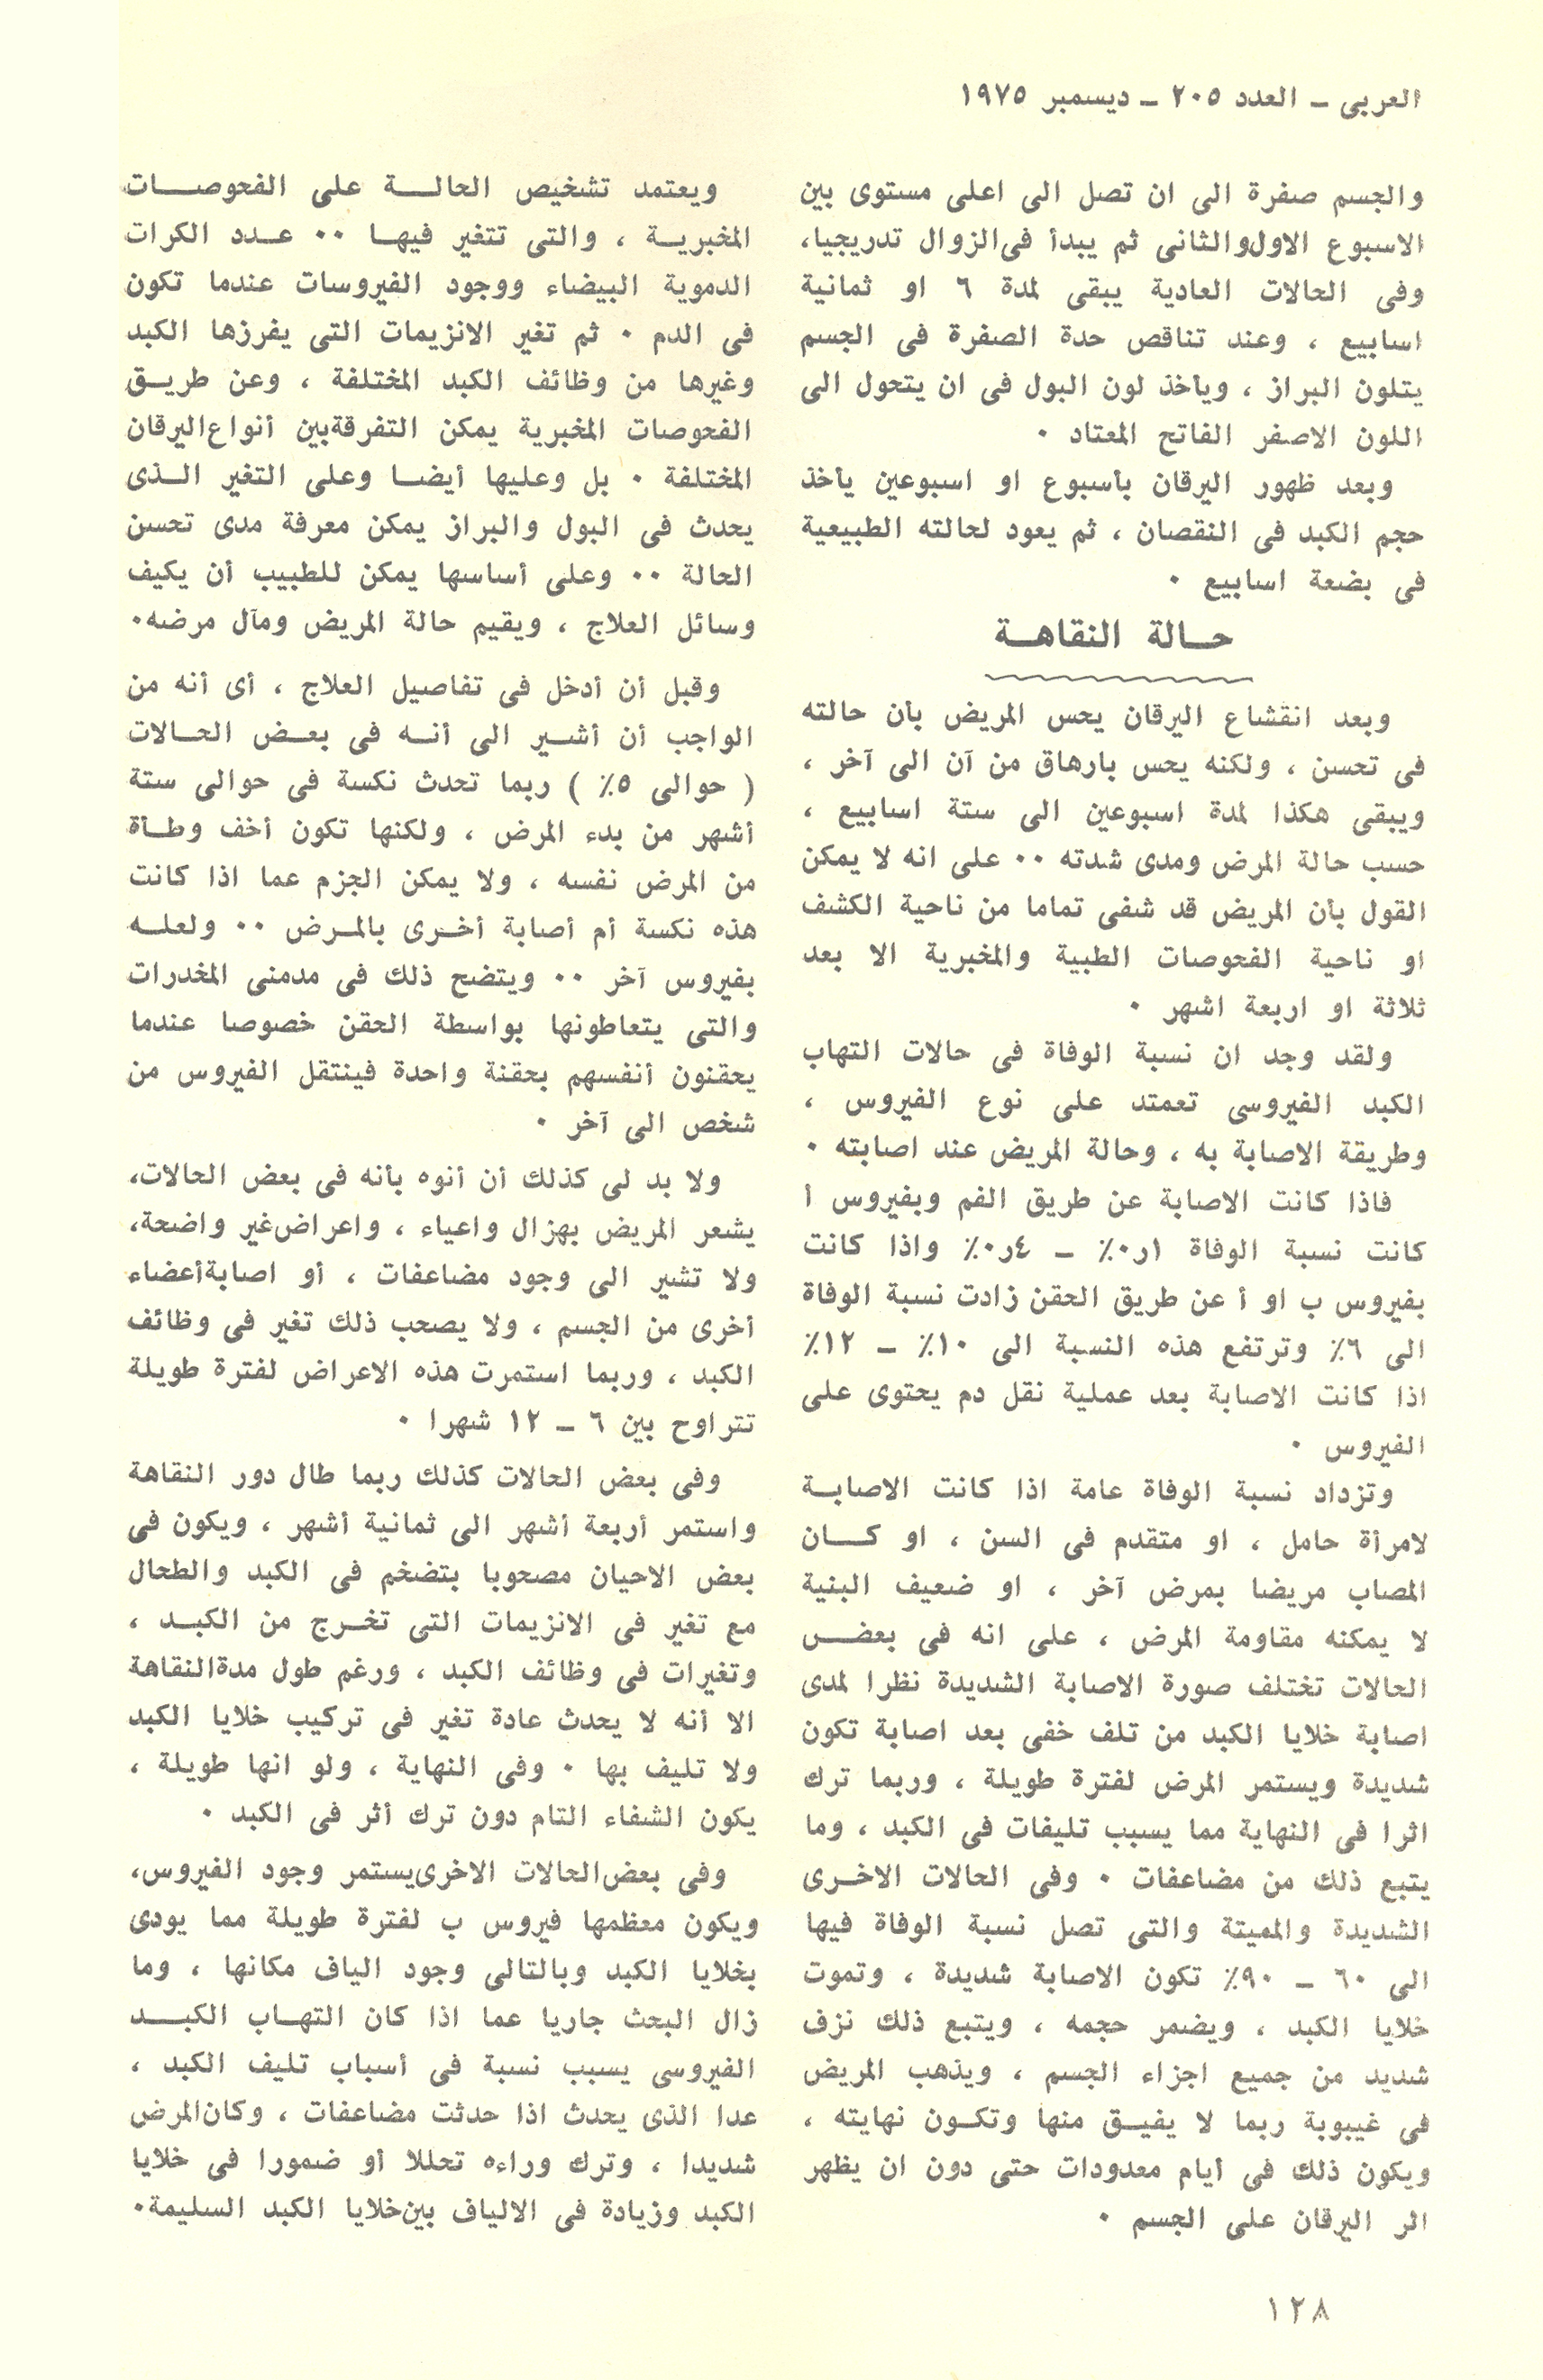 العربى ــ العدد ٢٠٥ ــ ديسمبر ١٩٧٥
والجسم صفرة الى ان تصل الى اعلى مستوى بين
الاسبوع الاول والثانى ثم يبدأ فى الزوال تدريجيا،
وفى الحالات العادية يبقى لمدة ٦ او ثمانية
اسابيع ، وعند تناقص حدة الصفرة فى الجسم
يتلون البراز ، ويأخذ لون البول فى ان يتحول الى
اللون الاصفر الفاتح المعتاد ٠
وبعد ظهور اليرقان بأسبوع او اسبوعين يأخذ
حجم الكبد فى النقصان ، ثم يعود لحالته الطبيعية
فى بضعة اسابيع ٠
حــالة النقاهــة
وبعد انقشاع اليرقان يحس المريض بأن حالته
فى تحسن ، ولكنه يحس بارهاق من آن الى آخر ،
ويبقى هكذا لمدة اسبوعين الى ستة اسابيع ،
حسب حالة المرض ومدى شدته ٠٠ على انه لا يمكن
القول بأن المريض قد شفى تماما من ناحية الكشف
او ناحية الفحوصات الطبية والمخبرية الا بعد
ثلاثة او اربعة اشهر ٠
ولقد وجد ان نسبة الوفاة فى حالات التهاب
الكبد الفيروسى تعمتد على نوع الفيروس ،
وطريقة الاصابة به ، وحالة المريض عند اصابته ٠
فاذا كانت الاصابة عن طريق الفم وبفيروس أ
كانت نسبة الوفاة ١ر٠٪ ــ ٤ر٠٪ واذا كانت
بفيروس ب او أ عن طريق الحقن زادت نسبة الوفاة
الى ٦٪ وترتفع هذه النسبة الى ١٠٪ ــ ١٢٪
اذا كانت الاصابة بعد عملية نقل دم يحتوى على
الفيروس ٠
وتزداد نسبة الوفاة عامة اذا كانت الاصابــة
لامرأة حامل ، او متقدم فى السن ، او كـــان
المصاب مريضا بمرض آخر ، او ضعيف البنية
لا يمكنه مقاومة المرض ، على انه فى بعضــس
الحالات تختلف صورة الاصابة الشديدة نظرا لمدى
اصابة خلايا الكبد من تلف خفى بعد اصابة تكون
شديدة ويستمر المرض لفترة طويلة ، وربما ترك
اثرا فى النهاية مما يسبب تليفات فى الكبد ، وما
يتبع ذلك من مضاعفات ٠ وفى الحالات الاخـرى
الشديدة والمميتة والتى تصل نسبة الوفاة فيها
الى ٦٠ ــ ٩٠٪ تكون الاصابة شديدة ، وتموت
خلايا الكبد ، ويضمر حجمه ، ويتبع ذلك نزف
شديد من جميع اجزاء الجسم ، ويذهب المريض
فى غيبوبة ربما لا يفيــق منها وتكــون نهايته ،
ويكون ذلك فى أيام معدودات حتى دون ان يظهر
اثر اليرقان على الجسم ٠
ويعتمد تشخيص الحالــة على الفحوصــات
المخبريــة ، والتى تتغير فيهــا ٠٠ عــدد الكرات
الدموية البيضاء ووجود الفيروسات عندما تكون
فى الدم ٠ ثم تغير الانزيمات التى يفرزها الكبد
وغيرها من وظائف الكبد المختلفة ، وعن طريــق
الفحوصات المخبرية يمكن التفرقة بين أنواع اليرقان
المختلفة ٠ بل وعليها أيضــا وعلى التغير الــذى
يحدث فى البول والبراز يمكن معرفة مدى تحسن
الحالة ٠٠ وعلى أساسها يمكن للطبيب أن يكيف
وسائل العلاج ، ويقيم حالة المريض ومآل مرضه٠
وقبل أن أدخل فى تفاصيل العلاج ، أى أنه من
الواجب أن أشــير الى أنــه فى بعــض الحــالات
( حوالى ٥٪ ) ربما تحدث نكسة فى حوالى ستة
أشهر من بدء المرض ، ولكنها تكون أخف وطــأة
من المرض نفسه ، ولا يمكن الجزم عما اذا كانت
هذه نكسة أم أصابة أخــرى بالمــرض ٠٠ ولعلــه
بفيروس آخر ٠٠ ويتضح ذلك فى مدمنى المخدرات
والتى يتعاطونها بواسطة الحقن خصوصا عندما
يحقنون أنفسهم بحقنة واحدة فينتقل الفيروس من
شخص الى آخر ٠
ولا بد لى كذلك أن أنوه بأنه فى بعض الحالات،
يشعر المريض بهزال واعياء ، واعراض غير واضحة،
ولا تشير الى وجود مضاعفات ، أو اصابة أعضاء
أخرى من الجسم ، ولا يصحب ذلك تغير فى وظائف
الكبد ، وربما استمرت هذه الاعراض لفترة طويلة
تتراوح بين ٦ ــ ١٢ شهرا ٠
وفى بعض الحالات كذلك ربما طال دور النقاهة
واستمر أربعة أشهر الى ثمانية أشهر ، ويكون فى
بعض الاحيان مصحوبا بتضخم فى الكبد والطحال
مع تغير فى الانزيمات التى تخــرج من الكبــد ،
وتغيرات فى وظائف الكبد ، ورغم طول مدة النقاهة
الا أنه لا يحدث عادة تغير فى تركيب خلايا الكبد
ولا تليف بها ٠ وفى النهاية ، ولو انها طويلة ،
يكون الشفاء التام دون ترك أثر فى الكبد ٠
وفى بعض الحالات الاخرى يستمر وجود الفيروس،
ويكون معظمها فيروس ب لفترة طويلة مما يودى
بخلايا الكبد وبالتالى وجود الياف مكانها ، وما
زال البحث جاريا عما اذا كان التهــاب الكبـــد
الفيروسى يسبب نسبة فى أسباب تليف الكبد ،
عدا الذى يحدث اذا حدثت مضاعفات ، وكان المرض
شديدا ، وترك وراءه تحللا أو ضمورا فى خلايا
الكبد وزيادة فى الالياف بين خلايا الكبد السليمة٠
١٢٨